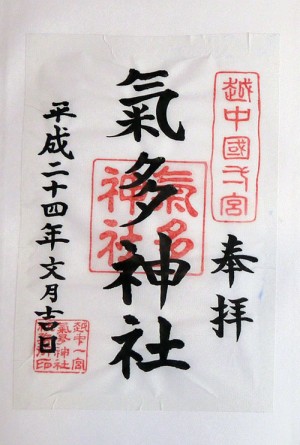 越中國一宮
奉拝
氣多神社
氣多
神社
平成二十四年文月吉日
越中一宮
氣多神社